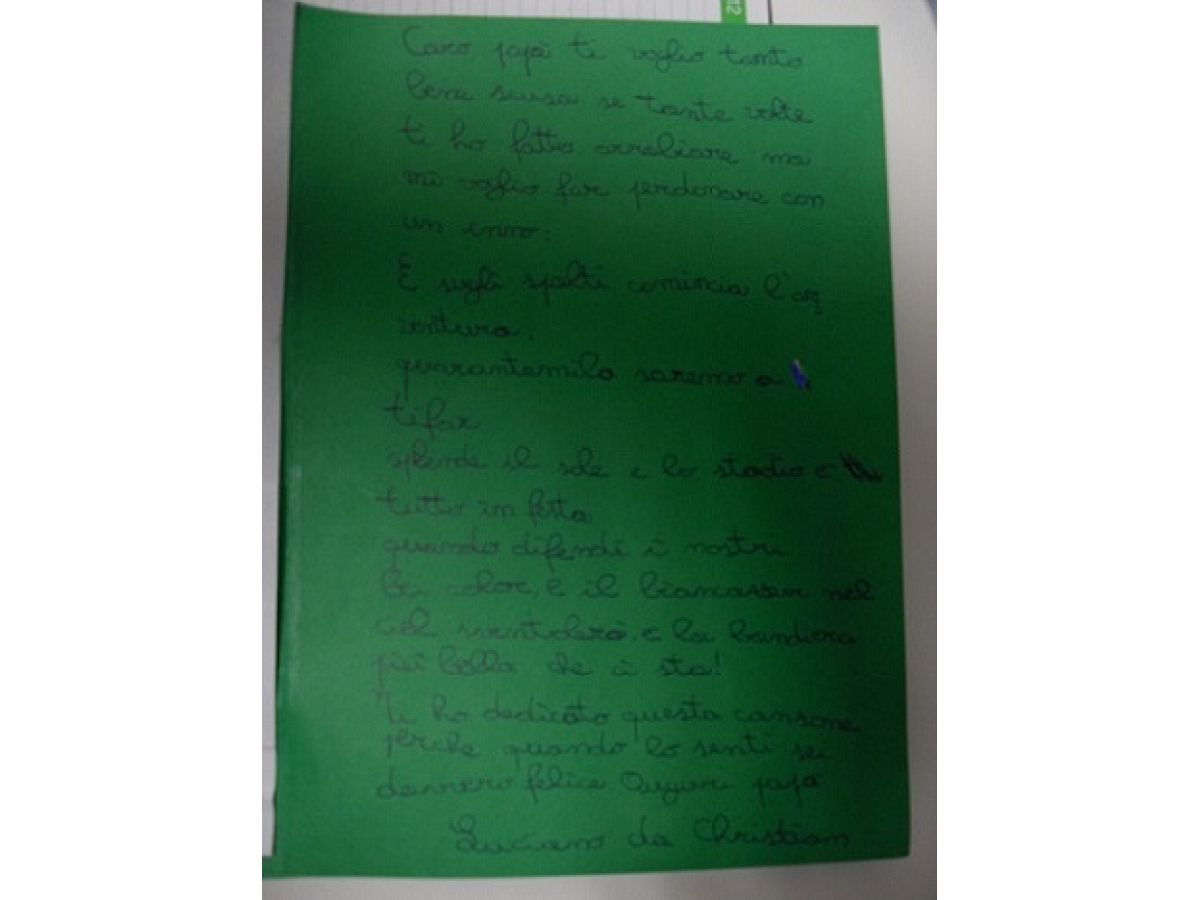 12
Caro papà ti voglio tanto
bene scusa se tante volte
ti ho fatto arrabiare ma
mi voglio far perdonare con
un inno:
E sugli spalti comincia l'av
ventura.
quarantamila saremo a
tifar
splende il sole e lo stadio e
tutto in festa
quando difendi i nostri
bei color, e il biancassur nel
ciel sventolerò, e la bandiera
più bella che ci sta!
Ti ho dedicato questa cansone
perche quando lo senti sei
davvero felice Auguri papà
Luciano da Christian